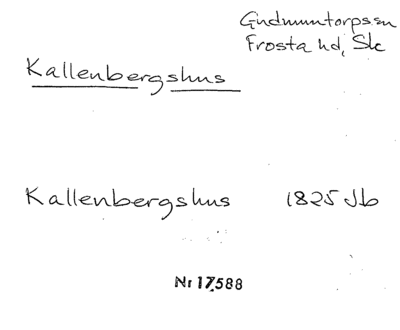 Gudmuntorps sn
Frosta hd, Sk
Kallenbergshus
Kallenbergshus 1825 Jb
Nr 17588